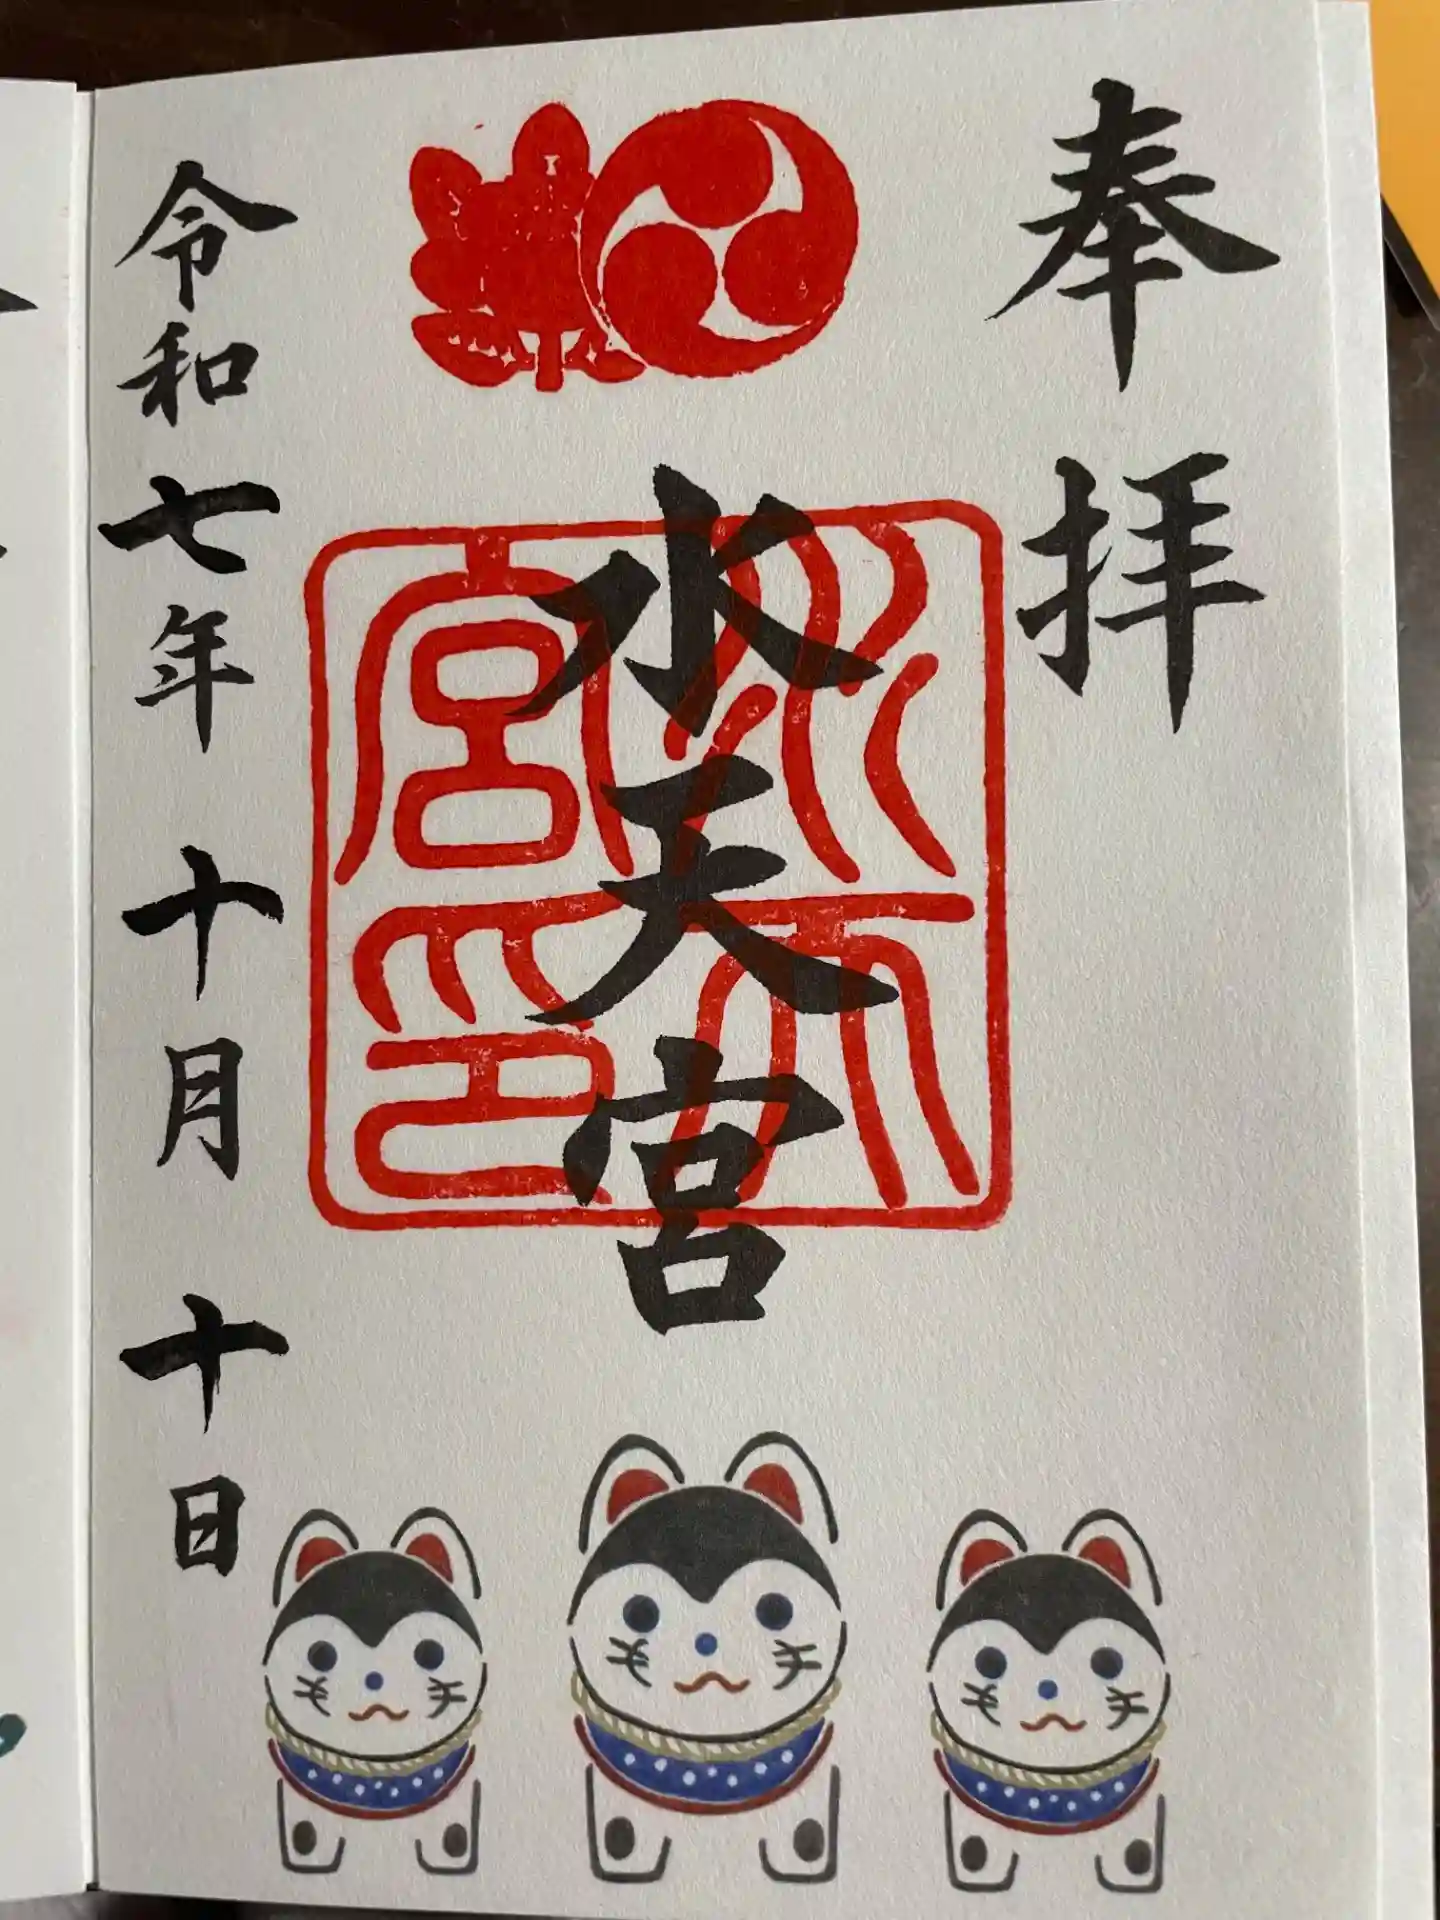 奉拝
水天宮
水天宮印
令和七年十月十日